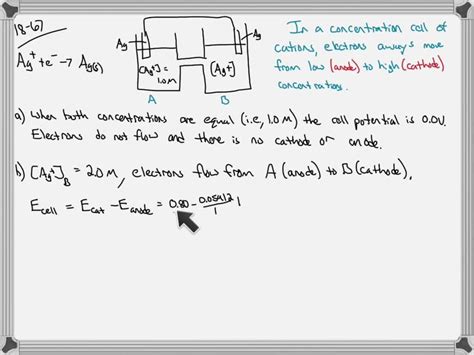 18-67
Ag⁺ + e⁻ → Ag(s)
Ag
Ag
[Ag⁺] =
1.0 M
[Ag⁺]
A
B
In a concentration cell of
cations, electrons always move
from low (anode) to high (cathode)
concentrations.
a) When both concentrations are equal (i.e., 1.0 M) the cell potential is 0.0V.
Electrons do not flow and there is no cathode or anode.
b) [Ag⁺]B = 2.0 M, electrons flow from A (anode) to B (cathode),
Ecell = Ecat − Eanode = 0.80 − 0.05912/1 1